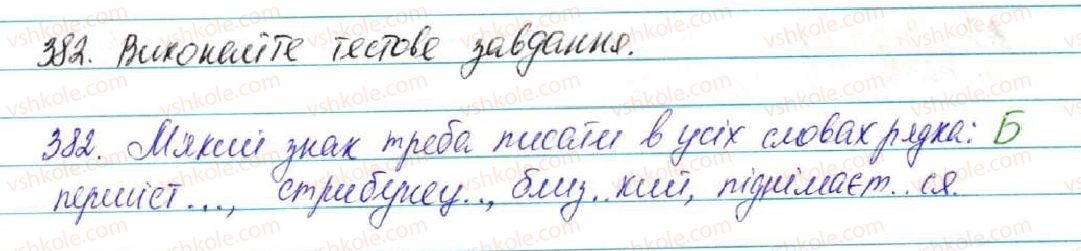 382. Виконайте тестове завдання.
382. М'який знак треба писати в усіх словах рядка: Б
першіст..., стрибунец.., близ..кий, піднімаєт..ся.